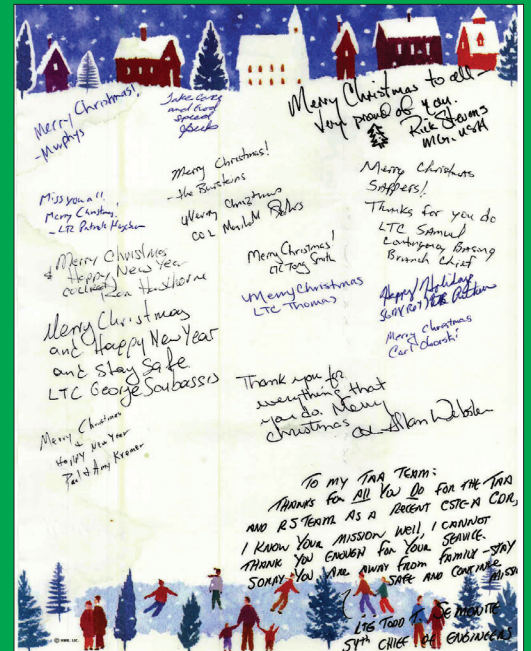 Merry Christmas!
-Murphys
Take Care
and God
speed
Merry Christmas to all -
Very proud of you.
Rick Stevens
MG, USA
Merry Christmas!
- the Bursteins
Merry Christmas
COL
Merry Christmas
Sappers!
Thanks for you do
LTC Samuel
Contingency Basing
Branch Chief
Miss you all,
Merry Christmas,
- LTC Patrick
Merry Christmas
& Happy New Year
Merry Christmas!
LTC Tony Smith
Merry Christmas
LTC Thomas
Happy Holidays
Merry Christmas
Carl
Merry Christmas
and Happy New Year
and Stay Safe
LTC George Soubassis
Thank you for
everything that
you do. Merry
Christmas COL Allan Webster
Merry Christmas
&
Happy New Year
Paul & Amy Kremer
To my TAA TEAM:
THANKS FOR ALL YOU DO FOR THE TAA
AND RS TEAM AS A RECENT CSTC-A CDR,
I KNOW YOUR MISSION WELL, I CANNOT
THANK YOU ENOUGH FOR YOUR SERVICE.
SORRY YOU ARE AWAY FROM FAMILY - STAY
SAFE AND CONTINUE MISSION
LTG TODD T. SEMONITE
54TH CHIEF OF ENGINEERS